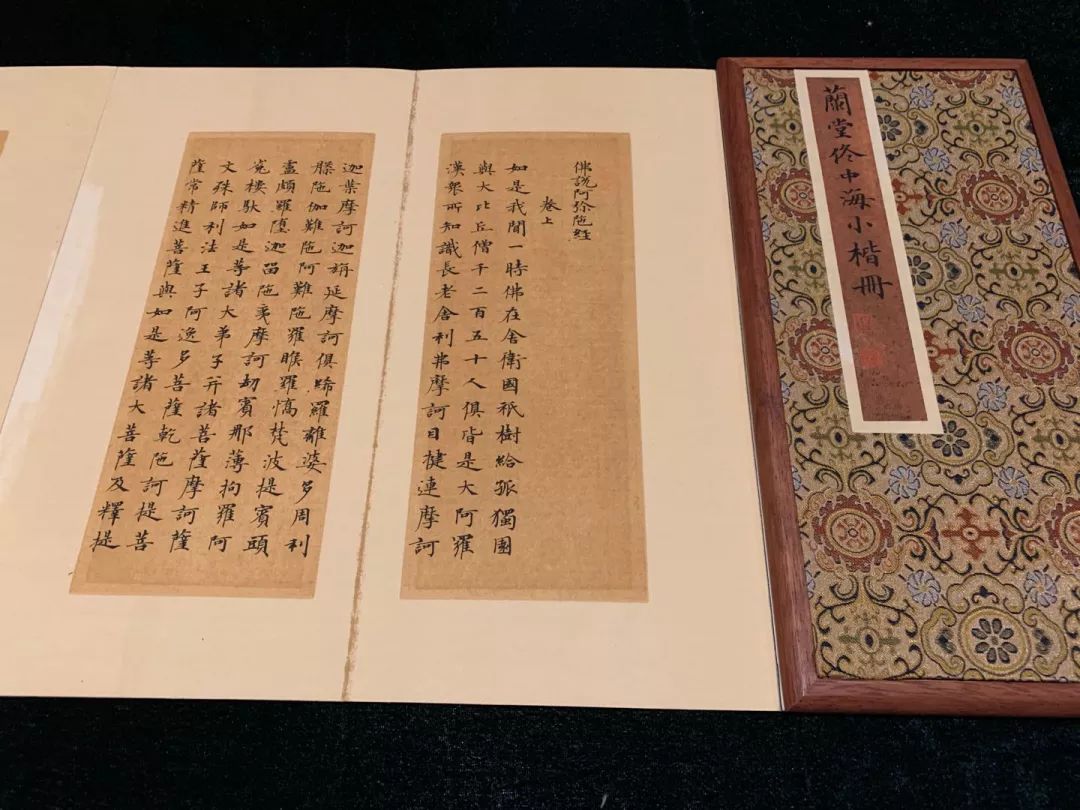 蘭堂佟中海小楷冊
佛說阿弥陁經
卷上
如是我聞一時佛在舍衛國祇樹給孤獨園
與大比丘僧千二百五十人俱皆是大阿羅
漢衆所知識長老舍利弗摩訶目揵連摩訶
迦葉摩訶迦旃延摩訶俱絺羅離婆多周利
槃陁伽難陁阿難陁羅睺羅憍梵波提賓頭
盧頗羅墮迦留陁夷摩訶劫賓那薄拘羅阿
㝹樓馱如是等諸大弟子并諸菩薩摩訶薩
文殊師利法王子阿逸多菩薩乾陁訶提菩
薩常精進菩薩與如是等諸大菩薩及釋提